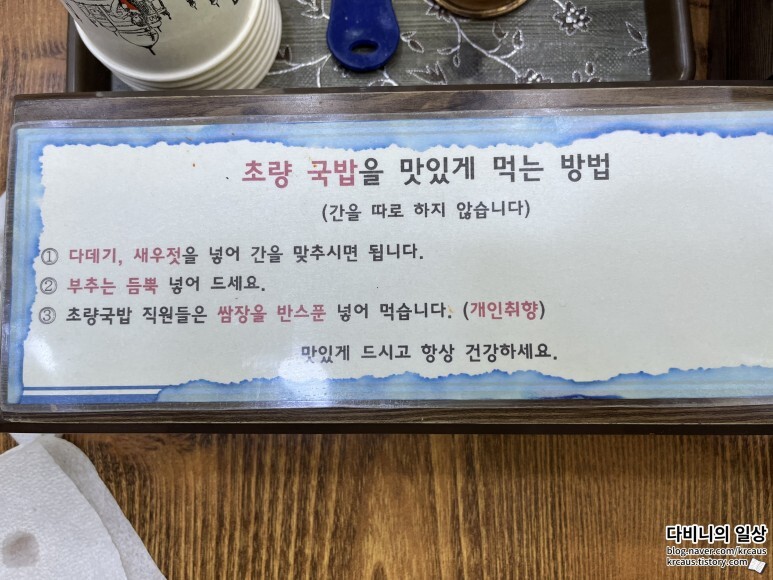 초량 국밥을 맛있게 먹는 방법
(간을 따로 하지 않습니다)
① 다데기, 새우젓을 넣어 간을 맞추시면 됩니다.
② 부추는 듬뿍 넣어 드세요.
③ 초량국밥 직원들은 쌈장을 반스푼 넣어 먹습니다. (개인취향)
맛있게 드시고 항상 건강하세요.
다비니의 일상
blog.naver.com/krcaus
krcaus.tistory.com